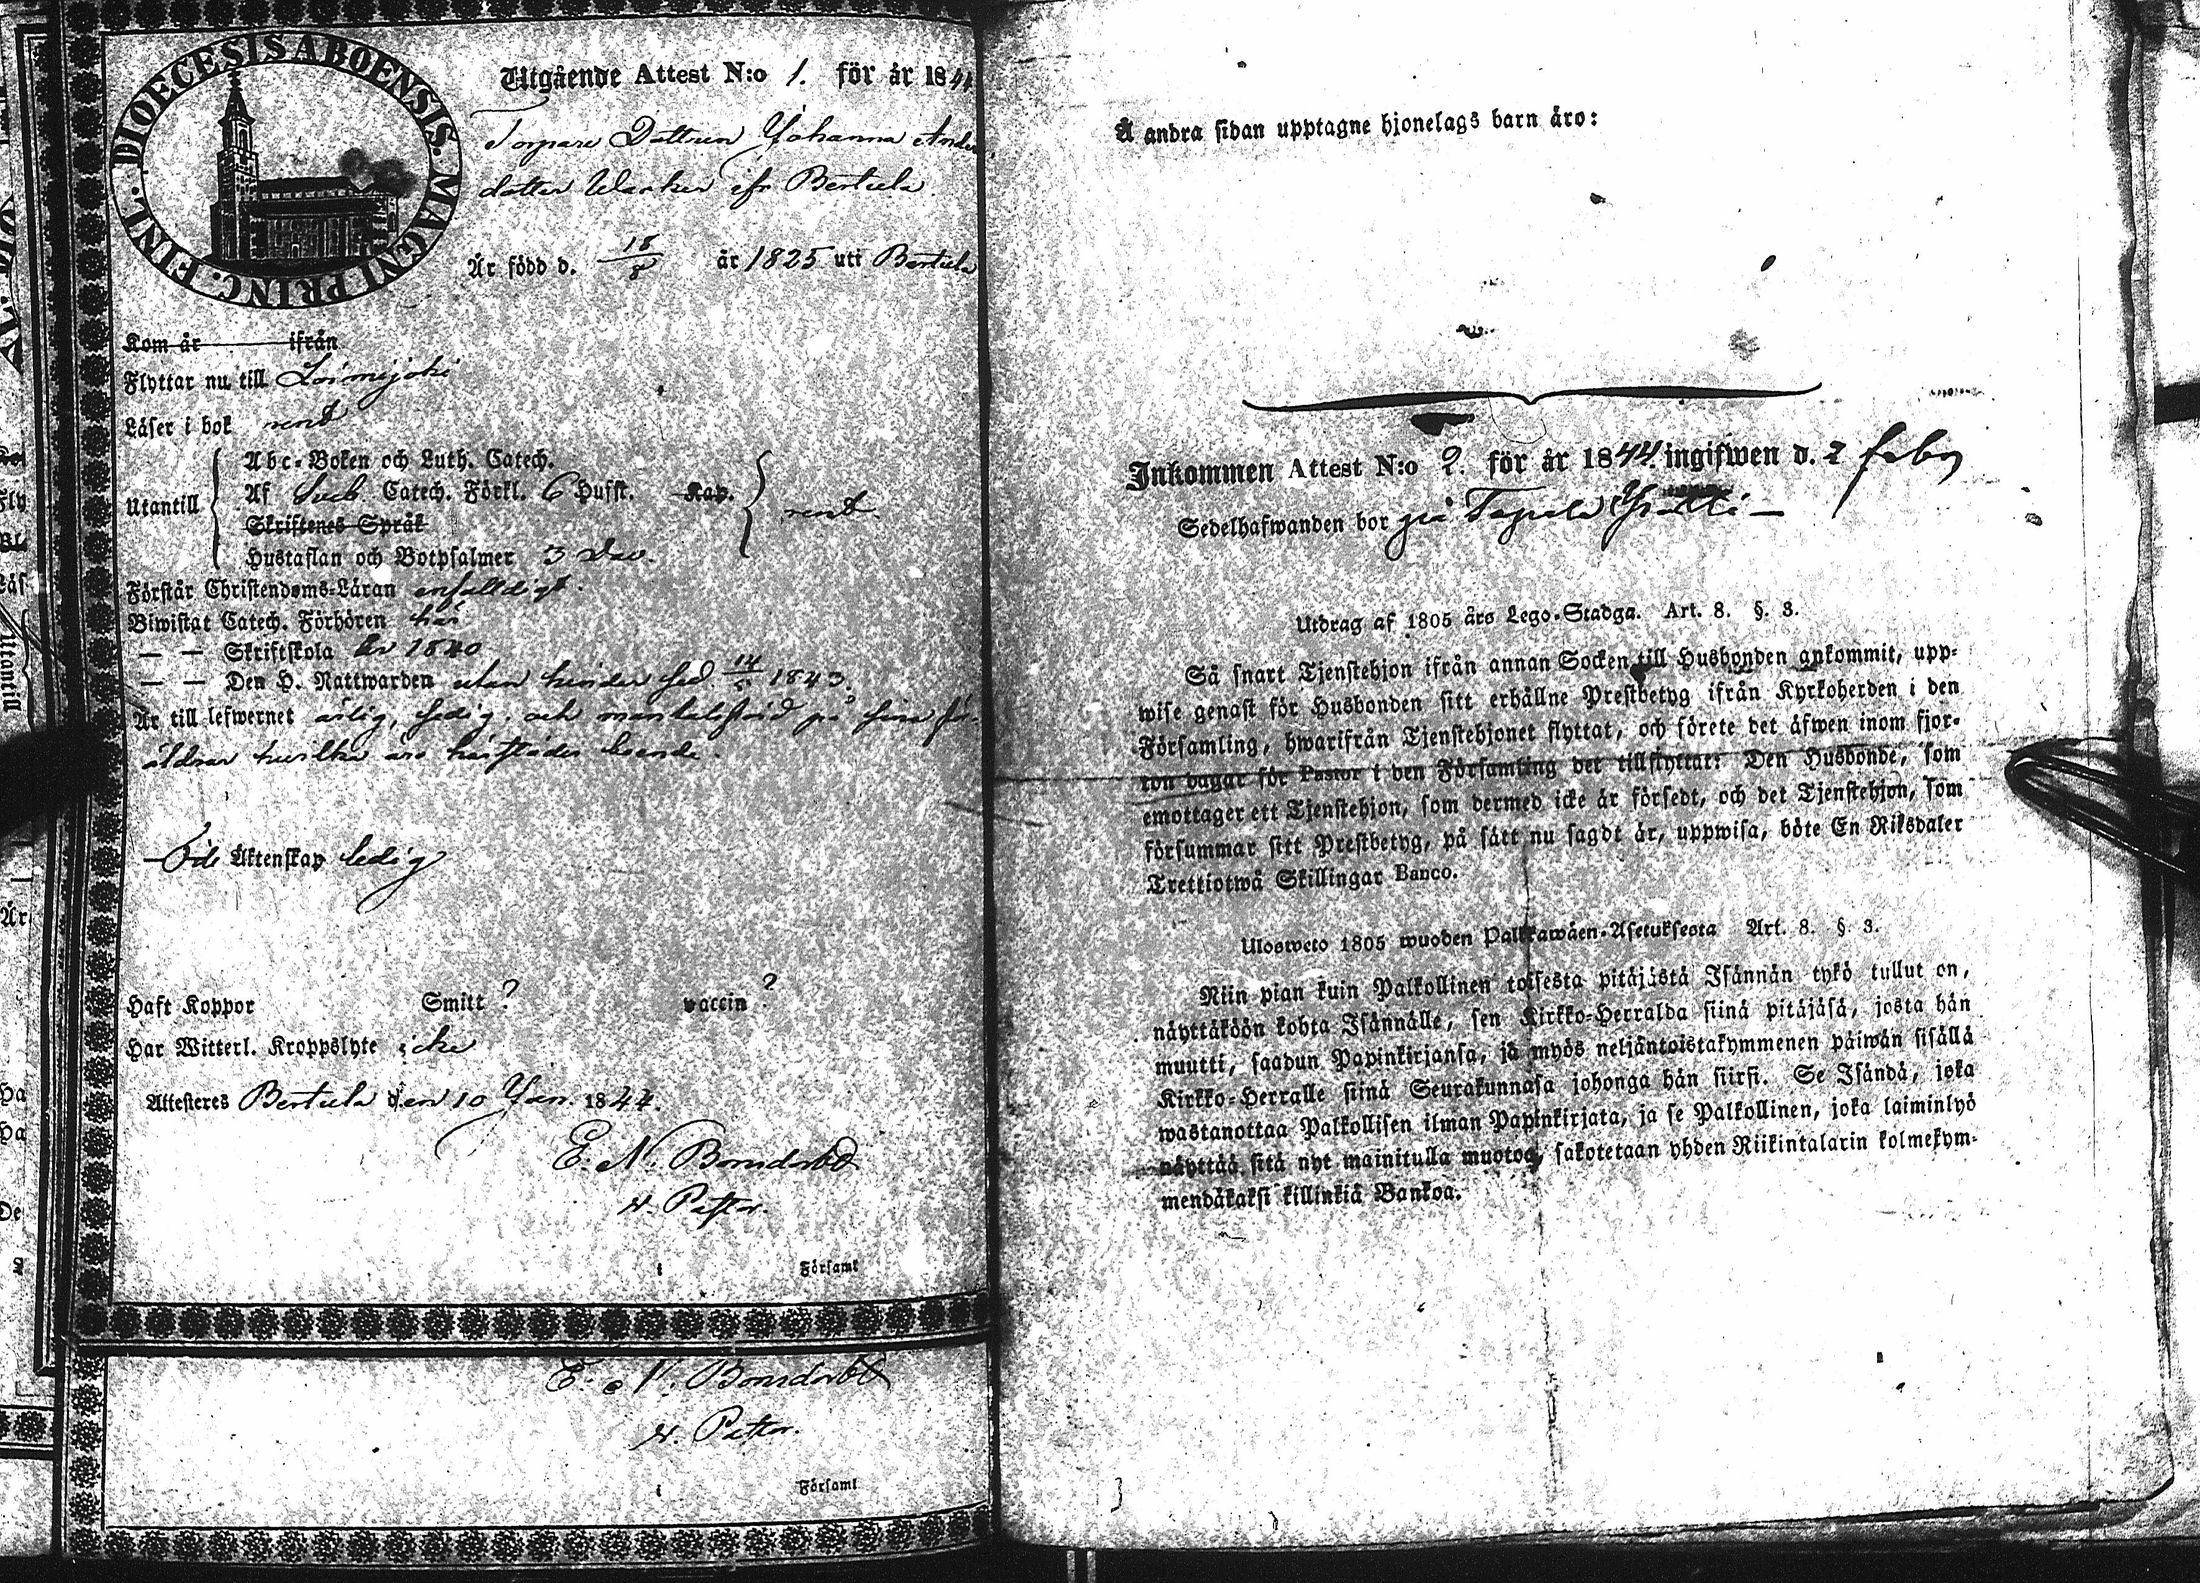 DIOECESIS ABOENSIS. MAGNI PRINC. FINL.
Utgående Attest N:o 1. för år 1844
Torpare Dottren Johanna Anders
dotter ifr Bertula
Är född d. 18/8 år 1825 uti Bertula
Kom år ifrån
Flyttar nu till Loimijoki
Läser i bok rent
Utantill
Abc-Boken och Luth. Catech.
Af Sveb. Catech. Förkl. 6 Hufst. Kap.
Skriftenes Språk
Hustaflan och Botpsalmer 3 Dav.
rent
Förstår Christendoms-Läran enfalldigt.
Biwistat Catech. Förhören här
— — Skriftskola år 1840
— — Den H. Nattwarden utan hinder sed 14/5 1843.
Är till lefwernet ärlig, sedig, och på sina för-
äldrar hvilka äro härstädes boende.
Till Äktenskap ledig
Haft Koppor Smitt ? vaccin ?
Har Witterl. Kroppslyte icke
Attesteres Bertula den 10 Jan. 1844.
E. N. Bonsdorff
V. Pastor.
i Församl
E. N. Bonsdorff
V. Pastor.
i Församl
Å andra sidan upptagne hjonelags barn äro:
Inkommen Attest N:o 2. för år 1844. ingifwen d. 2 feby
Sedelhafwanden bor på
Utdrag af 1805 års Lego-Stadga. Art. 8. §. 3.
Så snart Tjenstehjon ifrån annan Socken till Husbonden ankommit, upp-
wise genast för Husbonden sitt erhållne Prestbetyg ifrån Kyrkoherden i den
Församling, hwarifrån Tjenstehjonet flyttat, och förete det äfwen inom fjor-
ton dagar för Pastor i den Församling det tillflyttat: Den Husbonde, som
emottager ett Tjenstehjon, som dermed icke är försedt, och det Tjenstehjon, som
försummar sitt Prestbetyg, på sätt nu sagdt är, uppwisa, böte En Riksdaler
Trettiotwå Skillingar Banco.
Ulosweto 1805 wuoden Palkkawäen-Asetuksesta Art. 8. §. 3.
Niin pian kuin Palkollinen toisesta pitäjästä Isännän tykö tullut on,
näyttäköön kohta Isännälle, sen Kirkko-Herralda siinä pitäjäsä, josta hän
muutti, saadun Papinkirjansa, ja myös neljäntoistakymmenen päiwän sisällä
Kirkko-Herralle siinä Seurakunnasa johonga hän siirsi. Se Isändä, joka
wastanottaa Palkollisen ilman Papinkirjata, ja se Palkollinen, joka laiminlyö
näyttää sitä nyt mainitulla muotoa, sakotetaan yhden Riikintalarin kolmekym-
mendäkaksi killinkiä Bankoa.